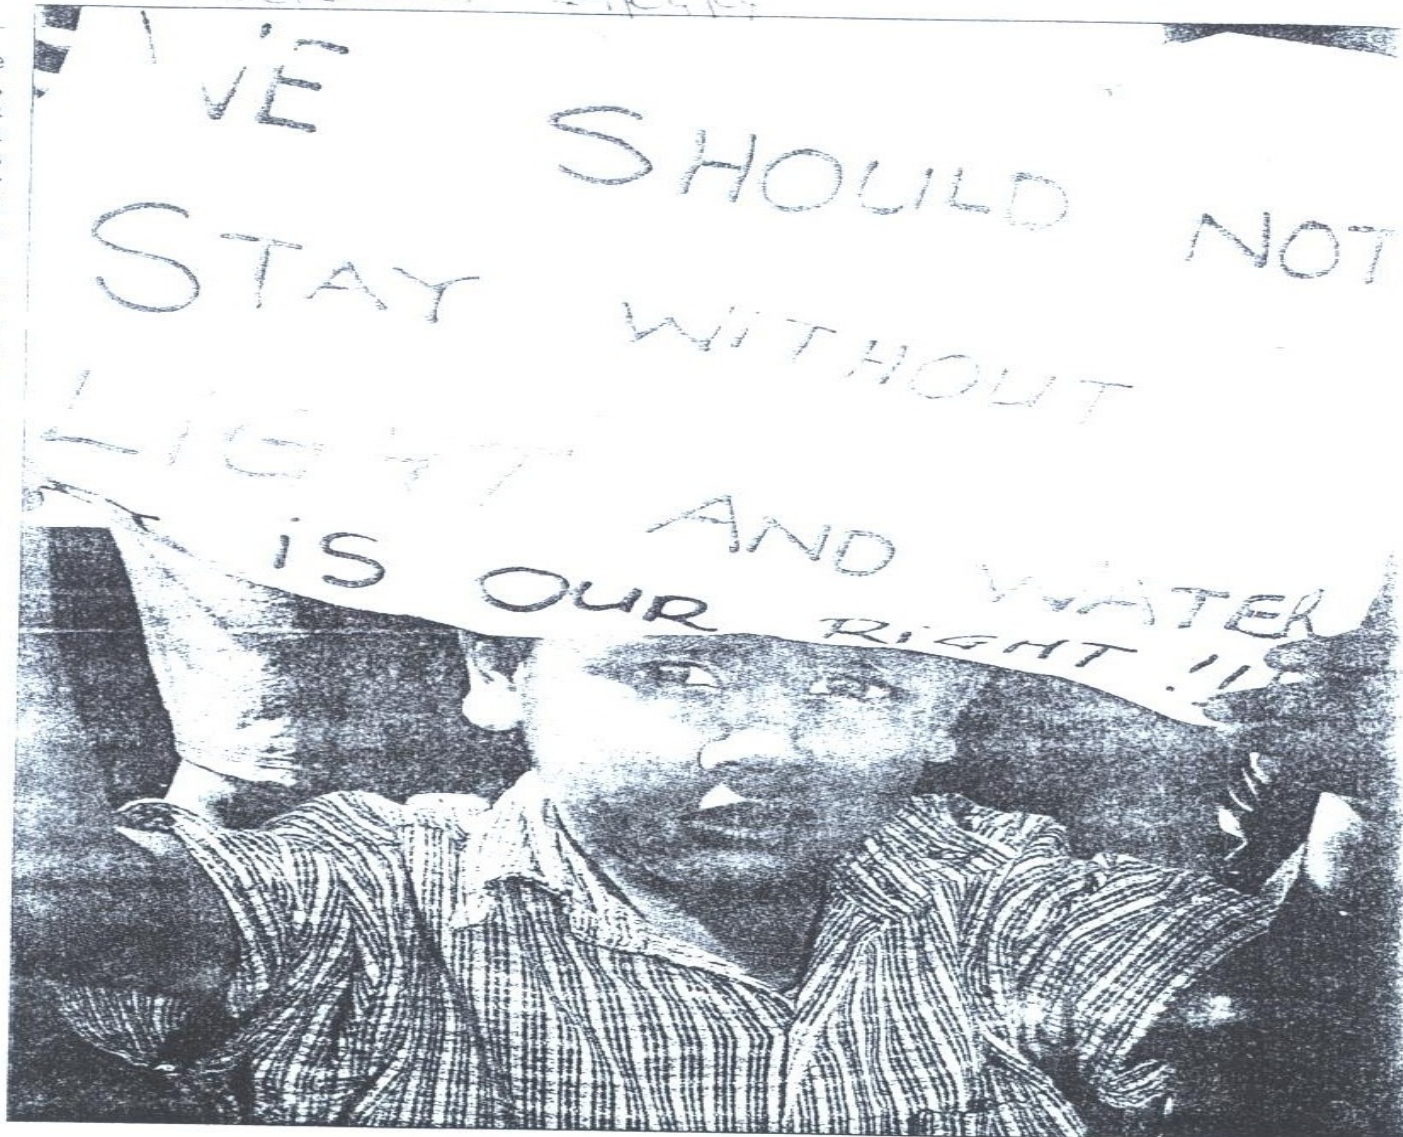 WE SHOULD NOT
STAY WITHOUT
LIGHT AND WATER
IS OUR RIGHT !!